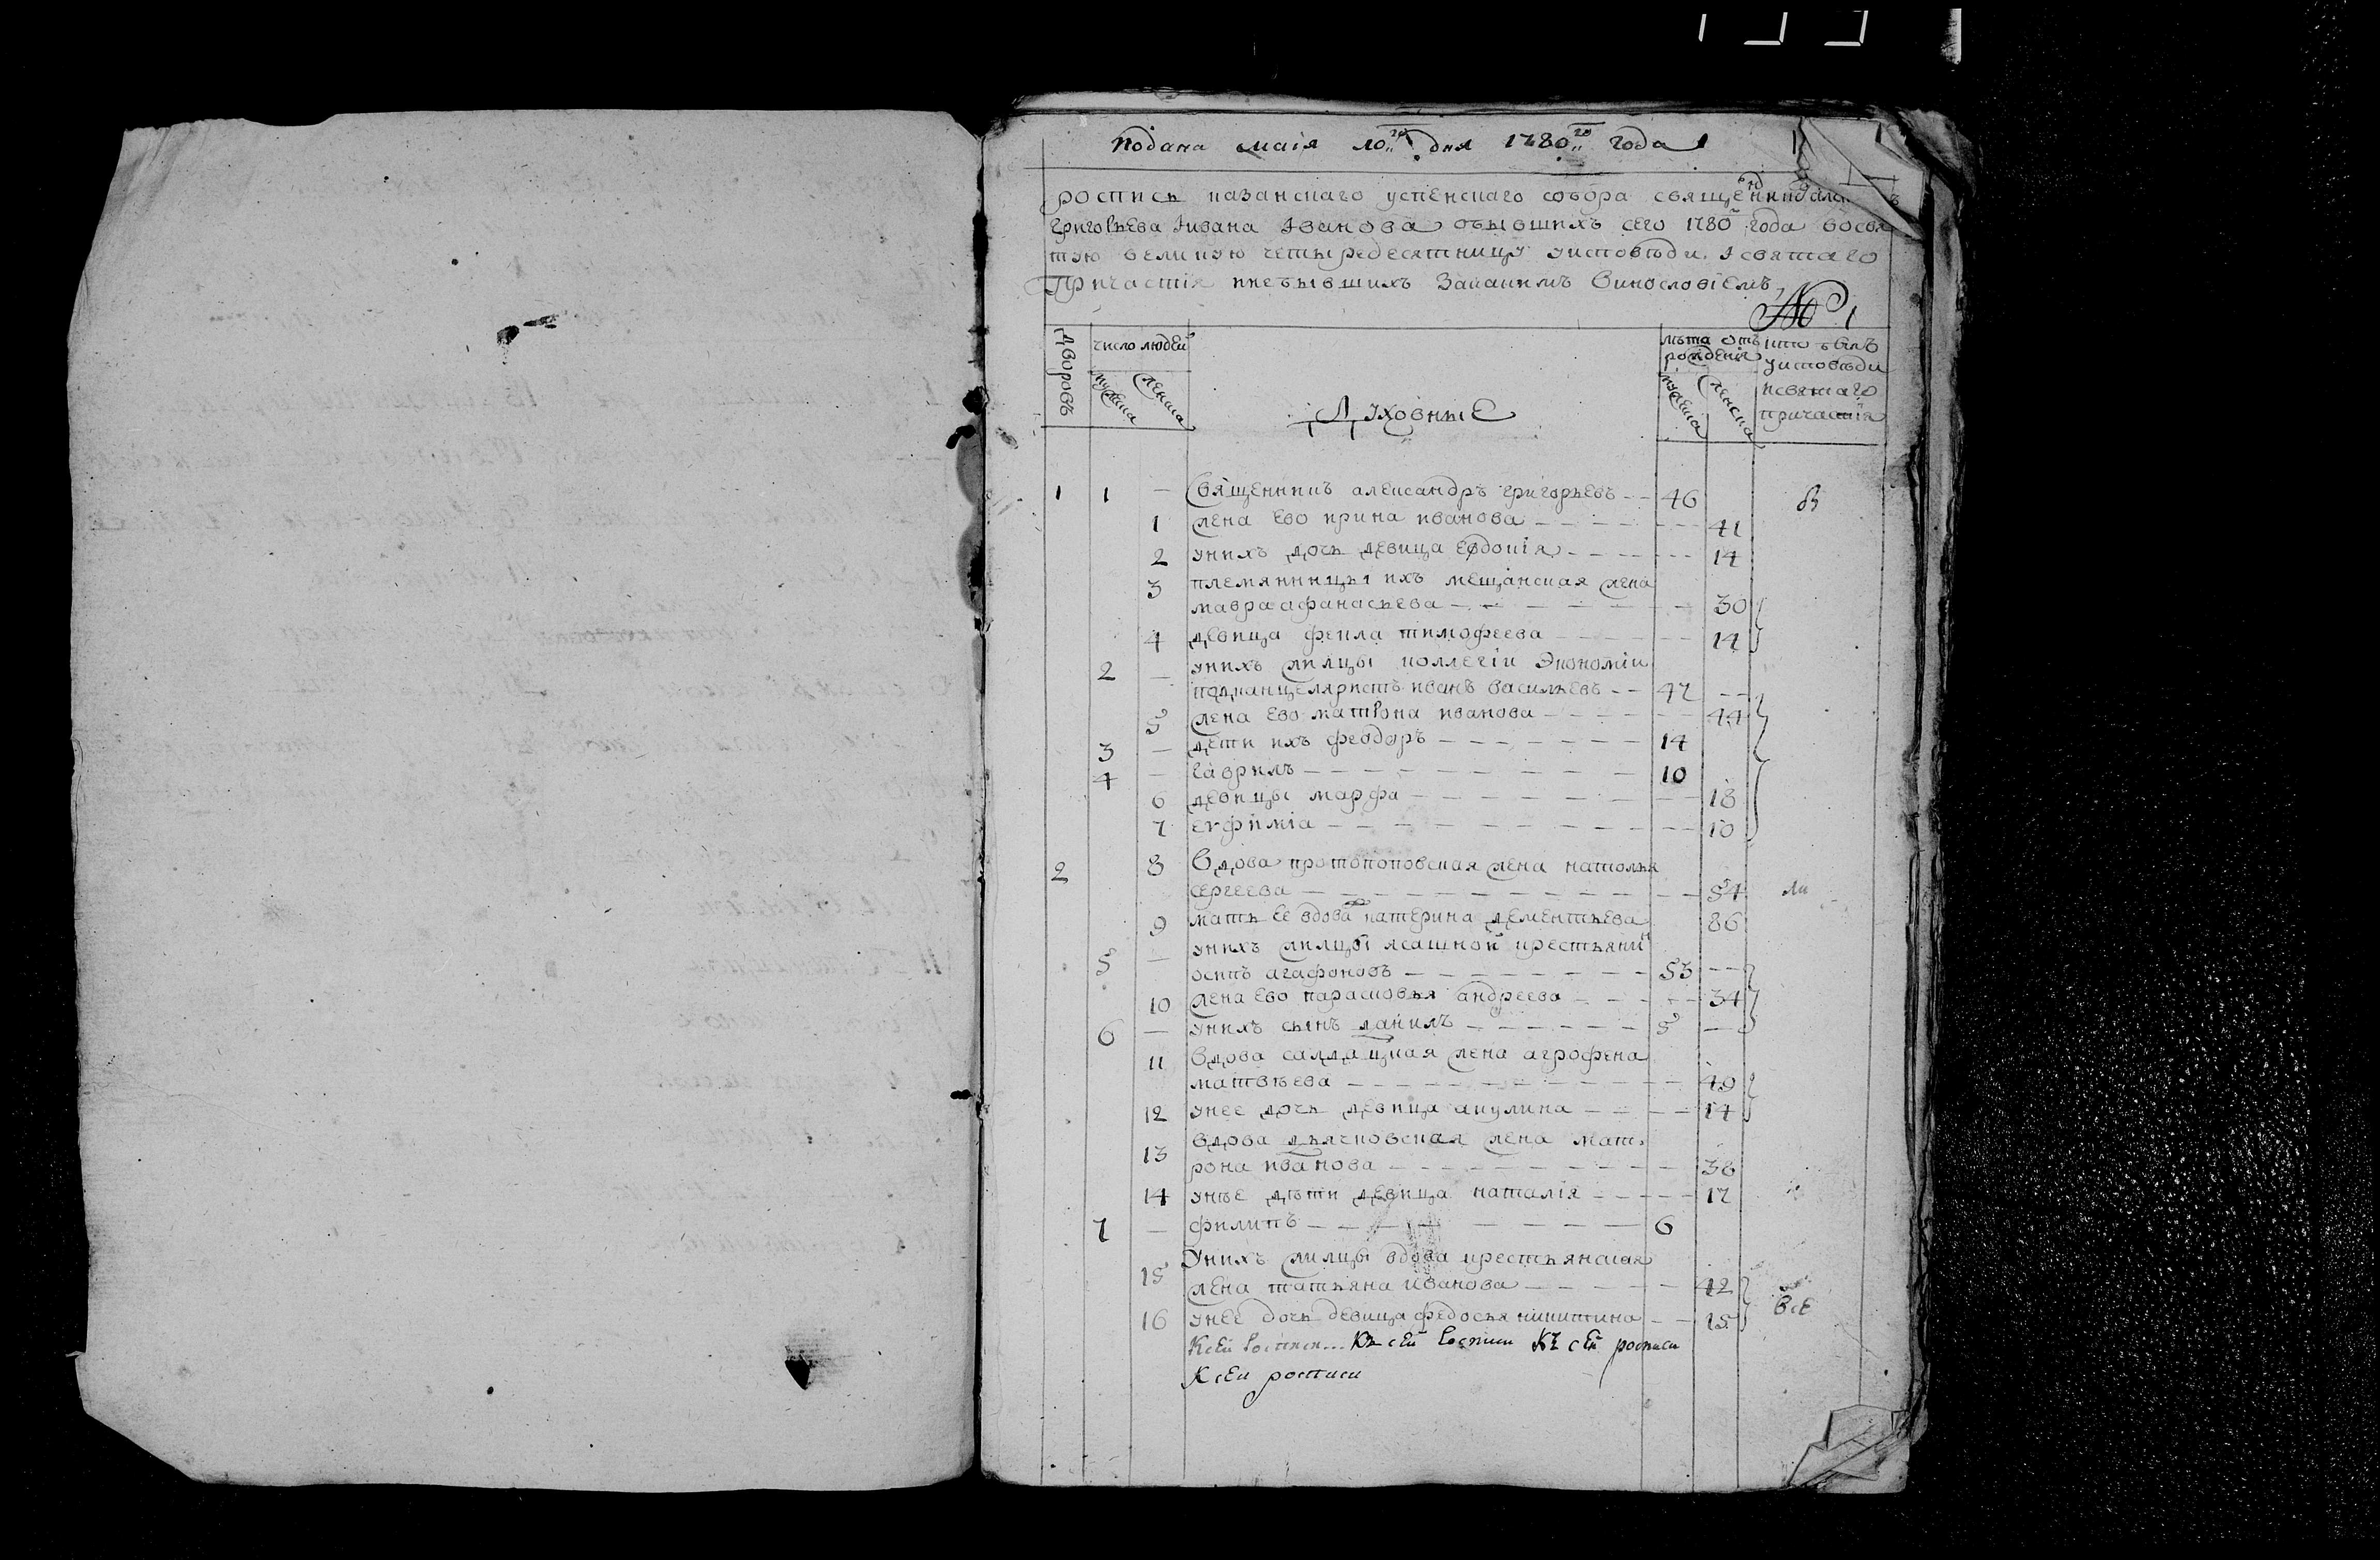 Подана маія 10го дня 1780го года
роспись казанскаго успенскаго собора священника
григорьева иивана Іванова обывшихъ сего 1780 года восвя
тую великую четыредесятницу уисповѣди Ісвятаго
Причастія инебывшихъ Закакимъ винословіемъ
№ 1
дворовъ число людей лѣта отъ кто былъ
рождения уисповѣди
мужеска женска Духовные мужеска женска исвятаго
причастія
1 1 — Священникъ александръ григорьевъ 46 В
1 жена Ево ирина иванова 41
2 унихъ дочь девица Евдокія 14
3 племянницы ихъ мещанская жена
мавра афанасьева 30
4 девица фекла тимофеева 14
2 — унихъ жилцы коллегіи Экономіи
подканцеляристъ иванъ васильевъ 47
5 жена Ево матрона иванова 44
3 — дети ихъ феодоръ 14
4 — гаврилъ 10
6 девицы марфа 18
7 Евфиміа 10
2 8 Вдова протопоповская жена наталья
сергеева 54
9 мать Ее вдова катерина дементьева 86
5 — унихъ жилцы ясашной крестьянин
осипъ агафоновъ 53
10 жена Ево парасковья андреева 34
6 — унихъ сынъ данилъ 5 —
11 Вдова салдацкая жена агрофена
матвѣева 49
12 унее дочь девица акулина 14
13 вдова дьячковская жена мат
рона иванова 38
14 унѣе дѣти девица наталія 17
7 — филипъ 6
15 Унихъ жилцы вдова крестьянская
жена татьяна иванова 42
16 унее дочь девица федосья никитина 15 всЕ
Ксеи росписи... Къ сеи росписи Къ сеи росписи
Ксеи росписи